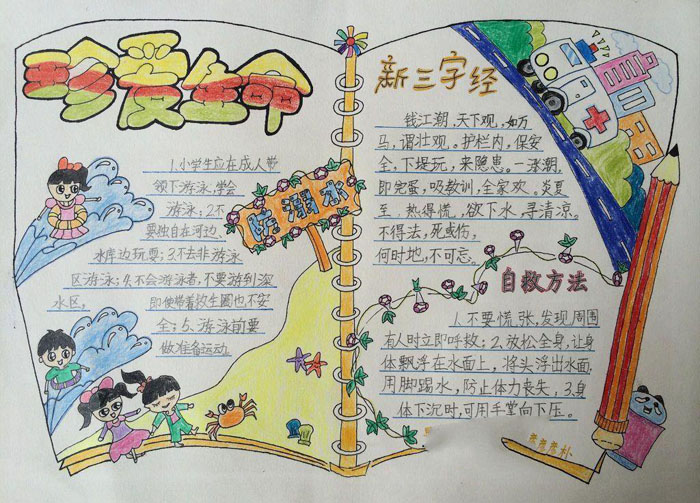 珍爱生命
1.小学生应在成人带
领下游泳,学会
游泳;2.不
要独自在河边、
水库边玩耍;3.不去非游泳
区游泳;4.不会游泳者,不要游到深
水区,即使带着救生圈也不安
全;5.游泳前要
做准备运动
防溺水
新三字经
钱江潮,天下观,如万
马,谓壮观。护栏内,保安
全,下堤玩,来隐患。一涨潮,
即完蛋,吸教训,全家欢,炎夏
至,热得慌,欲下水,寻清凉。
不得法,死或伤,
何时地,不可忘。
自救方法
1.不要慌张,发现周围
有人时立即呼救;2.放松全身,让身
体飘浮在水面上,将头浮出水面,
用脚踢水,防止体力丧失,3.身
体下沉时,可用手掌向下压。